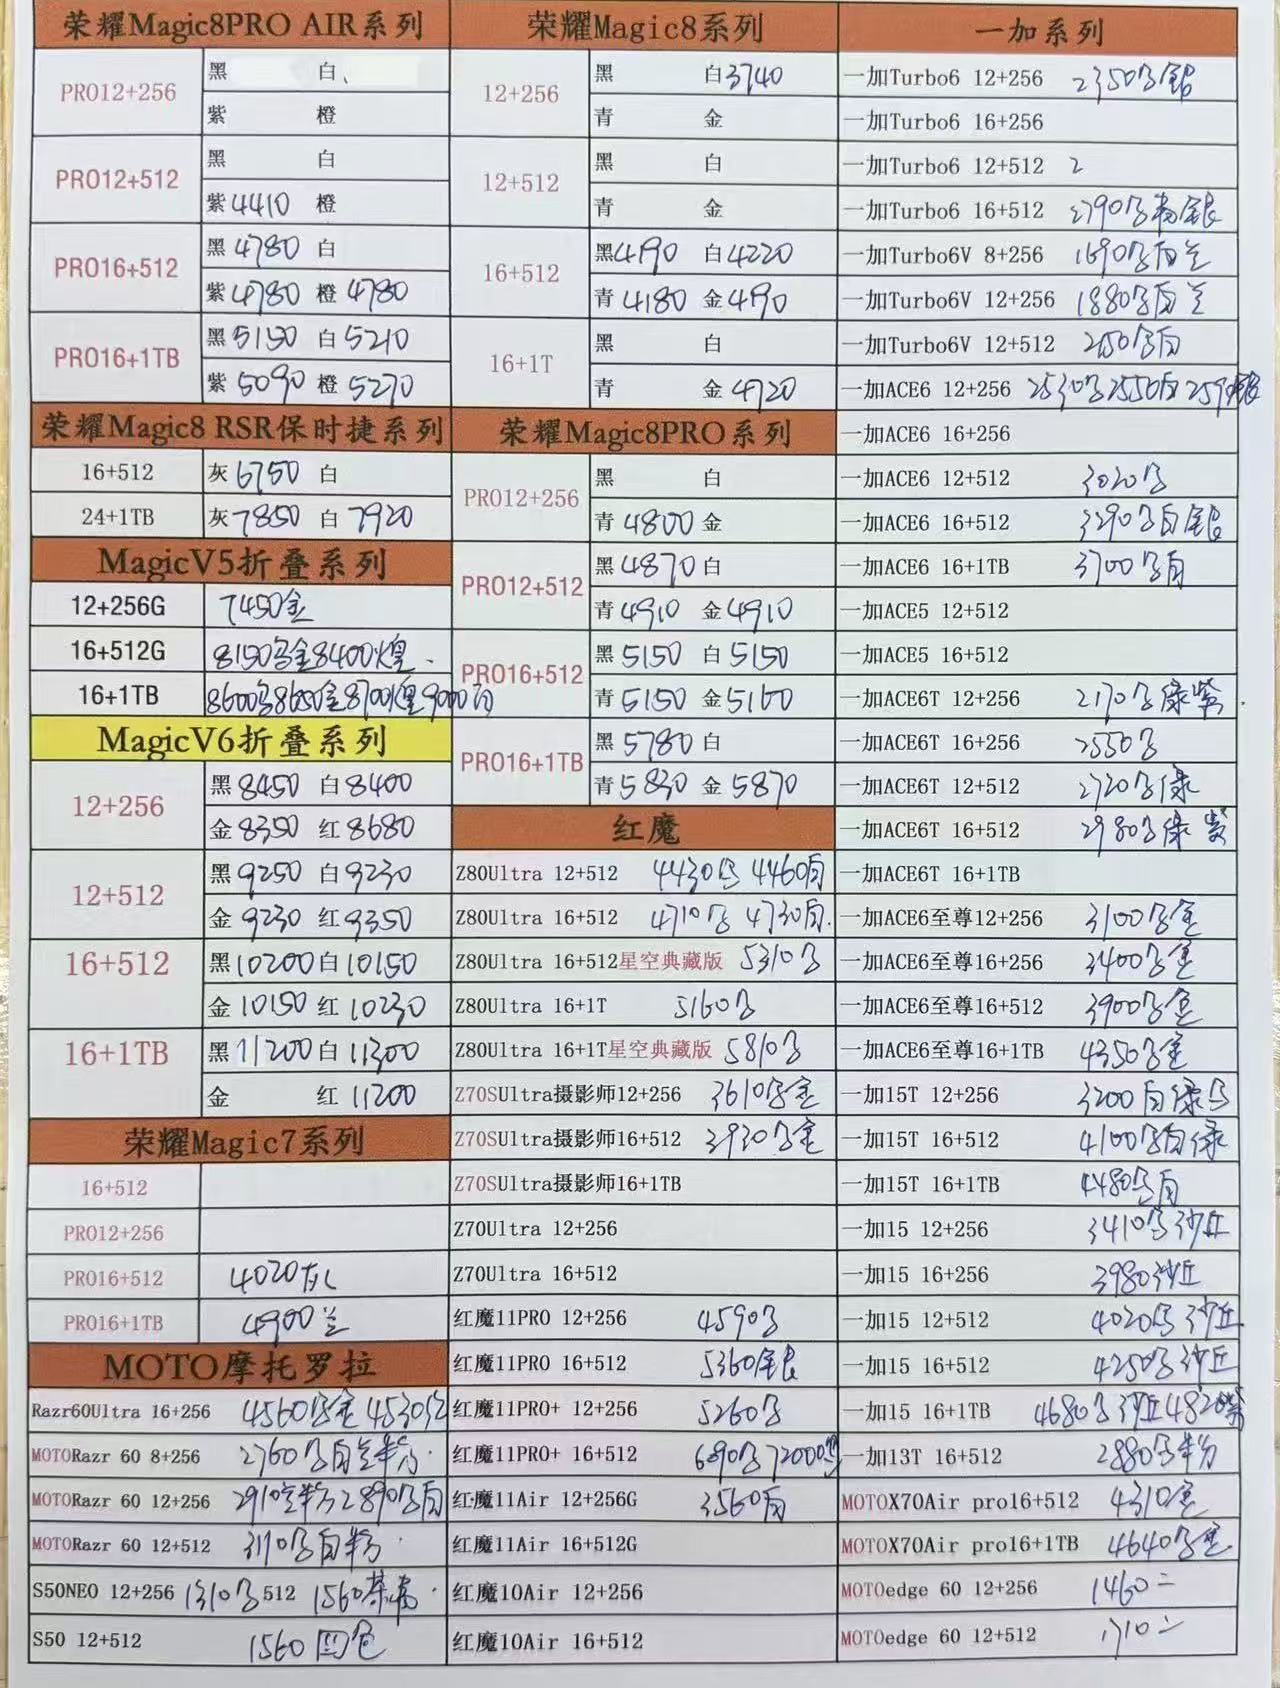 荣耀Magic8PRO AIR系列
PRO12+256
黑 白
紫 橙
PRO12+512
黑 白
紫4410 橙
PRO16+512
黑4780 白
紫4780 橙4780
PRO16+1TB
黑5150 白5210
紫5090 橙5270
荣耀Magic8 RSR保时捷系列
16+512 灰6750 白
24+1TB 灰7850 白7920
MagicV5折叠系列
12+256G 7450金
16+512G 8150 金8400煌
16+1TB 8600 8650金8700煌9000
MagicV6折叠系列
12+256
黑8450 白8400
金8350 红8680
12+512
黑9250 白9230
金9230 红9350
16+512
黑10200白10150
金10150 红10230
16+1TB
黑11200白11300
金 红11200
荣耀Magic7系列
16+512
PRO12+256
PRO16+512 4020灰
PRO16+1TB 4900兰
MOTO摩托罗拉
Razr60Ultra 16+256 4560 金 4530
MOTORazr 60 8+256 2760
MOTORazr 60 12+256 2910 2890
MOTORazr 60 12+512
S50NEO 12+256 1310 512 1560
S50 12+512 1560四色
荣耀Magic8系列
12+256
黑 白3740
青 金
12+512
黑 白
青 金
16+512
黑4190 白4220
青4180 金4190
16+1T
黑 白
青 金4720
荣耀Magic8PRO系列
PRO12+256
黑 白
青4800 金
PRO12+512
黑4870 白
青4910 金4910
PRO16+512
黑5150 白5150
青5150 金5160
PRO16+1TB
黑5780 白
青5830 金5870
红魔
Z80Ultra 12+512 4430 4460
Z80Ultra 16+512 4710 4730
Z80Ultra 16+512星空典藏版 5310
Z80Ultra 16+1T 5160
Z80Ultra 16+1T星空典藏版 5810
Z70SUltra摄影师12+256 3610
Z70SUltra摄影师16+512 3930
Z70SUltra摄影师16+1TB
Z70Ultra 12+256
Z70Ultra 16+512
红魔11PRO 12+256 4590
红魔11PRO 16+512 5360银
红魔11PRO+ 12+256 5260
红魔11PRO+ 16+512
红魔11Air 12+256G 3560
红魔11Air 16+512G
红魔10Air 12+256
红魔10Air 16+512
一加系列
一加Turbo6 12+256 2350 银
一加Turbo6 16+256
一加Turbo6 12+512 2
一加Turbo6 16+512 2790 银
一加Turbo6V 8+256 1690
一加Turbo6V 12+256 1880
一加Turbo6V 12+512
一加ACE6 12+256 2530 2550 2590银
一加ACE6 16+256
一加ACE6 12+512 3020
一加ACE6 16+512 3290 银
一加ACE6 16+1TB 3700
一加ACE5 12+512
一加ACE5 16+512
一加ACE6T 12+256 2170 绿紫
一加ACE6T 16+256 2550
一加ACE6T 12+512 2720 绿
一加ACE6T 16+512 2980 绿紫
一加ACE6T 16+1TB
一加ACE6至尊12+256 3100
一加ACE6至尊16+256 3400
一加ACE6至尊16+512 3900
一加ACE6至尊16+1TB 4350
一加15T 12+256 3200
一加15T 16+512 4100
一加15T 16+1TB 4480
一加15 12+256 3410 沙丘
一加15 16+256 3980沙丘
一加15 12+512 4020 沙丘
一加15 16+512 4250 沙丘
一加15 16+1TB 4680 沙丘 4820紫
一加13T 16+512 2880
MOTOX70Air pro16+512 4310
MOTOX70Air pro16+1TB 4640
MOTOedge 60 12+256 1460二
MOTOedge 60 12+512 1710二